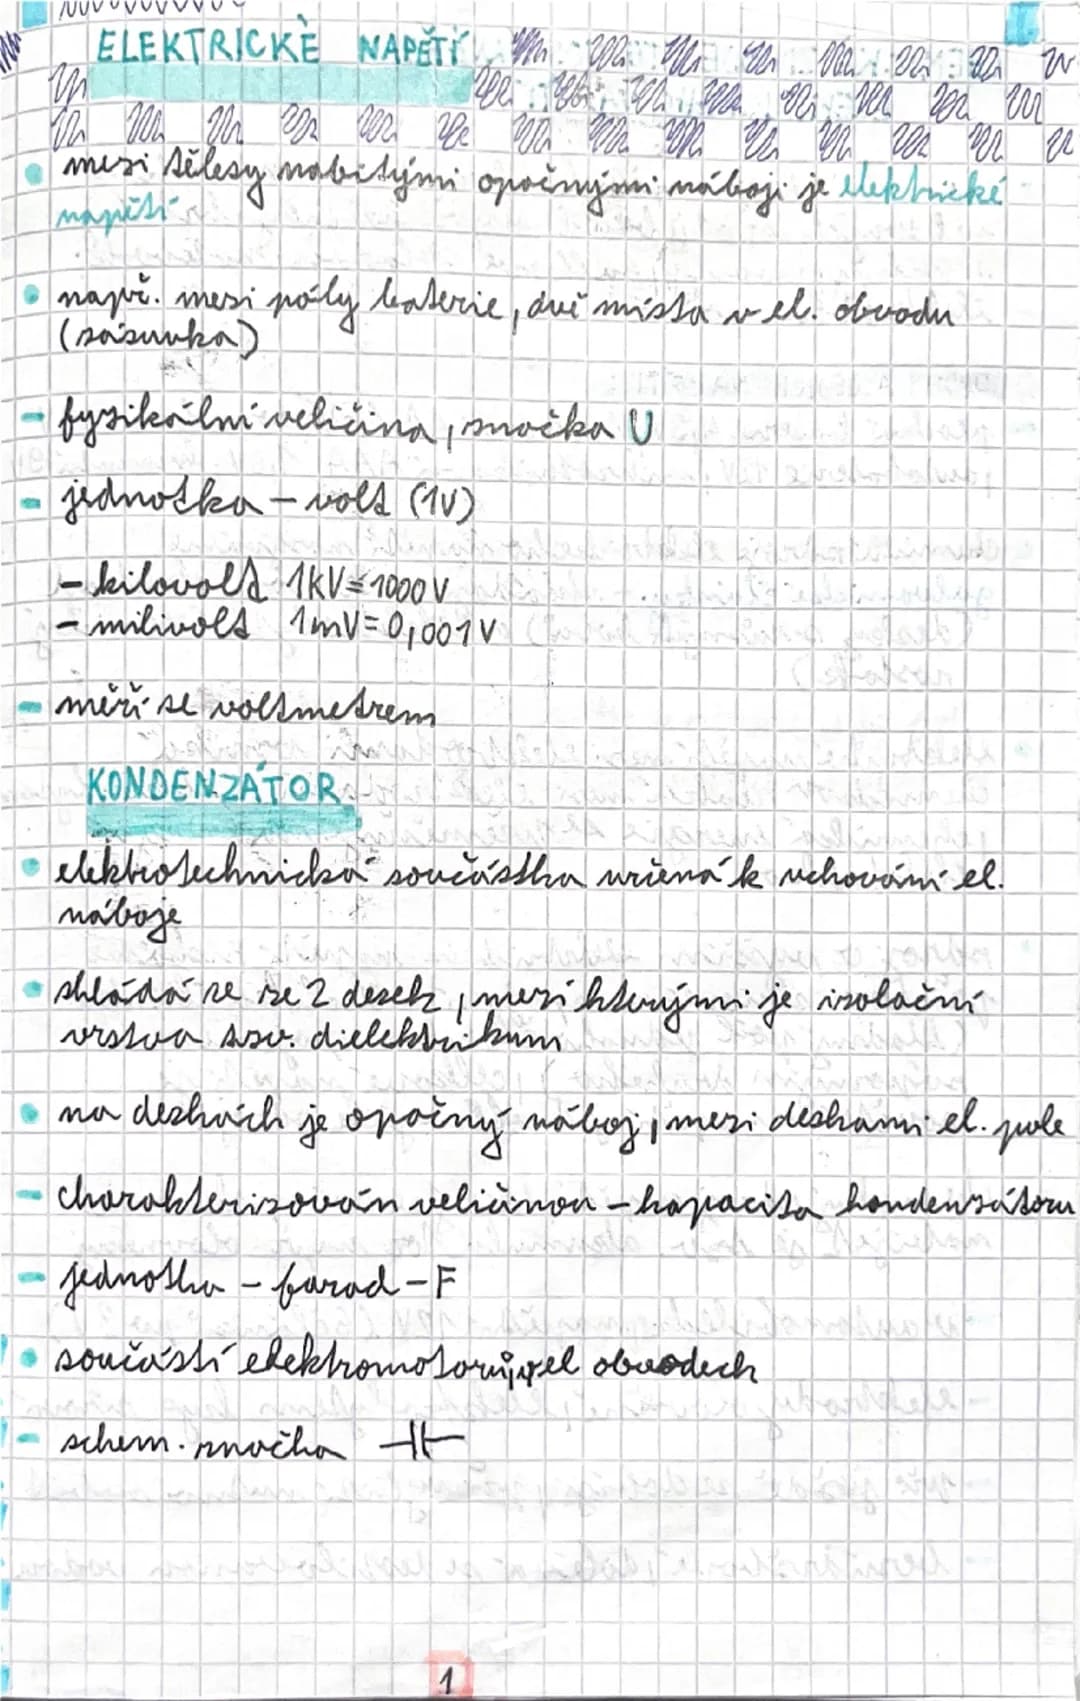 ELEKTRICKÉ NAPĚTÍ
mezi tělesy nabitými opačnými náboji je elektrické
napětí
např. mezi póly baterie, dvě místa v el. obvodu
(zásuvka)
fyzikální veličina, značka U
jednotka - volt (1V)
- kilovolt 1kV = 1000 V
- milivolt 1mV = 0,001 V
měří se voltmetrem
KONDENZÁTOR
elektrotechnická součástka určená k uchování el.
náboje
skládá se ze 2 desek, mezi kterými je izolační
vrstva tzv. dielektrikum
na deskách je opačný náboj, mezi deskami el. pole
charakterizován veličinou - kapacita kondenzátoru
jednotka - farad - F
součástí elektromotorů, v el obvodech
schem. značka
1